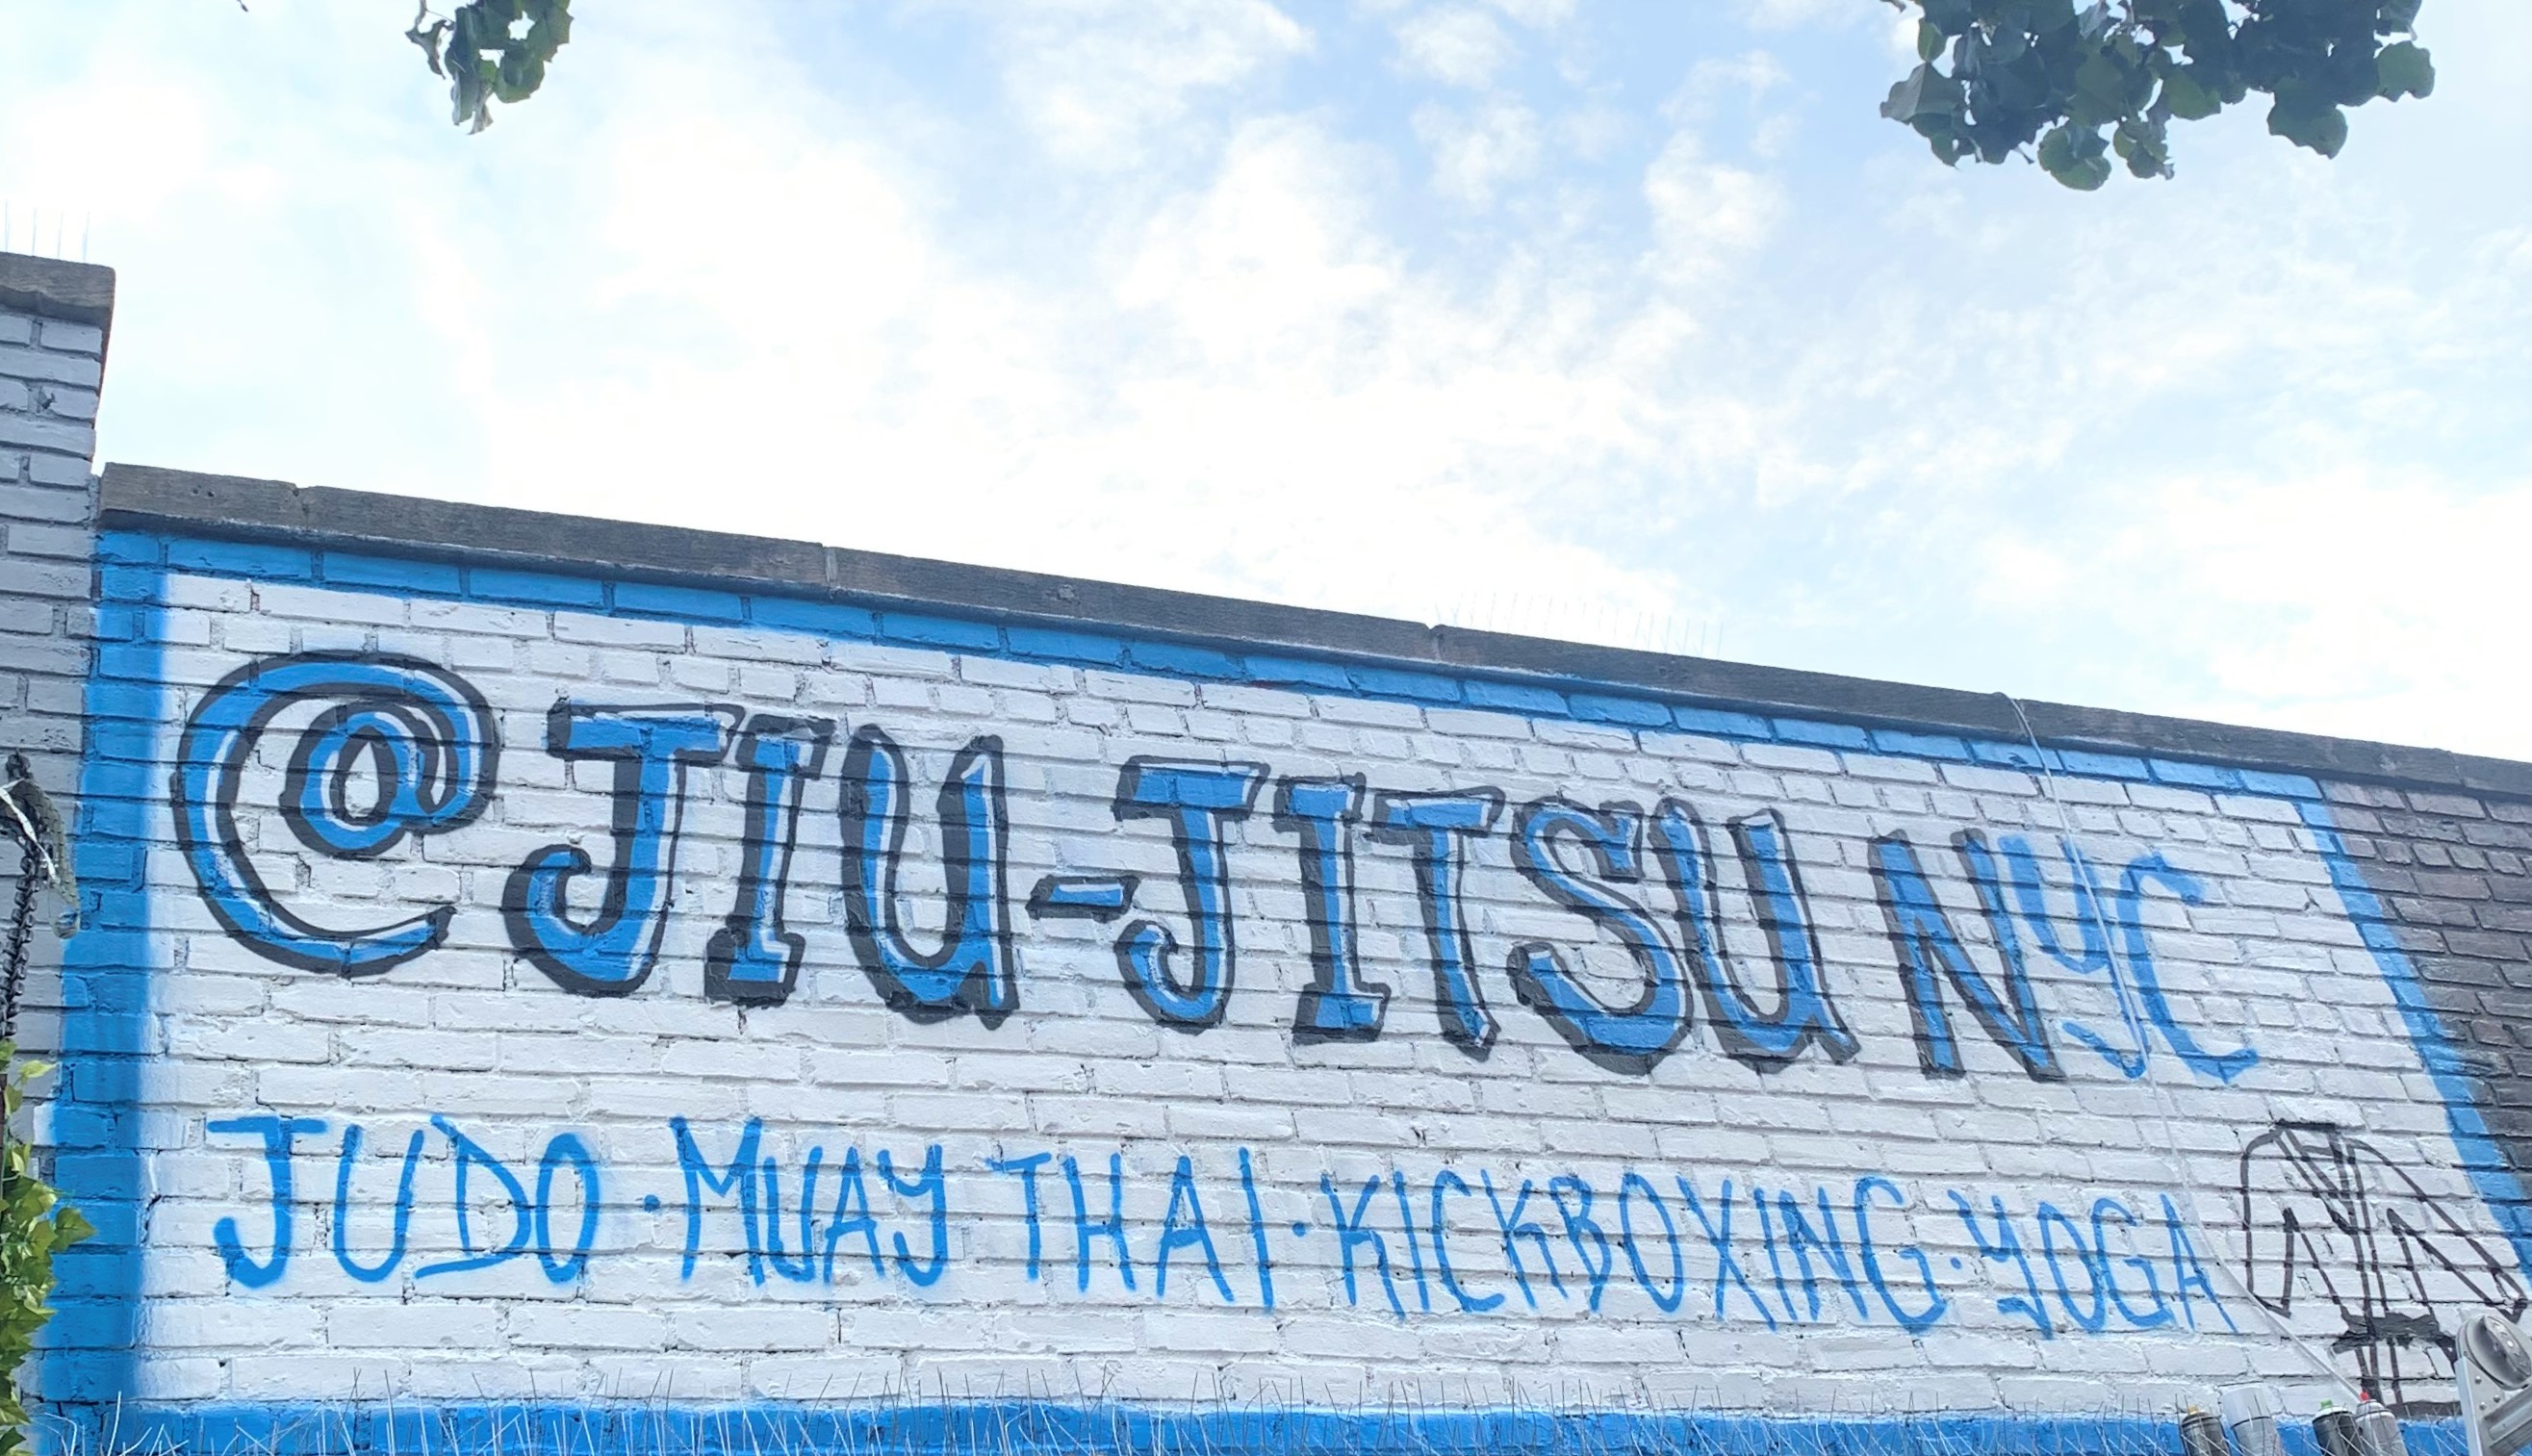 @JIU-JITSU NYC
JUDO·MUAY THAI·KICKBOXING·YOGA